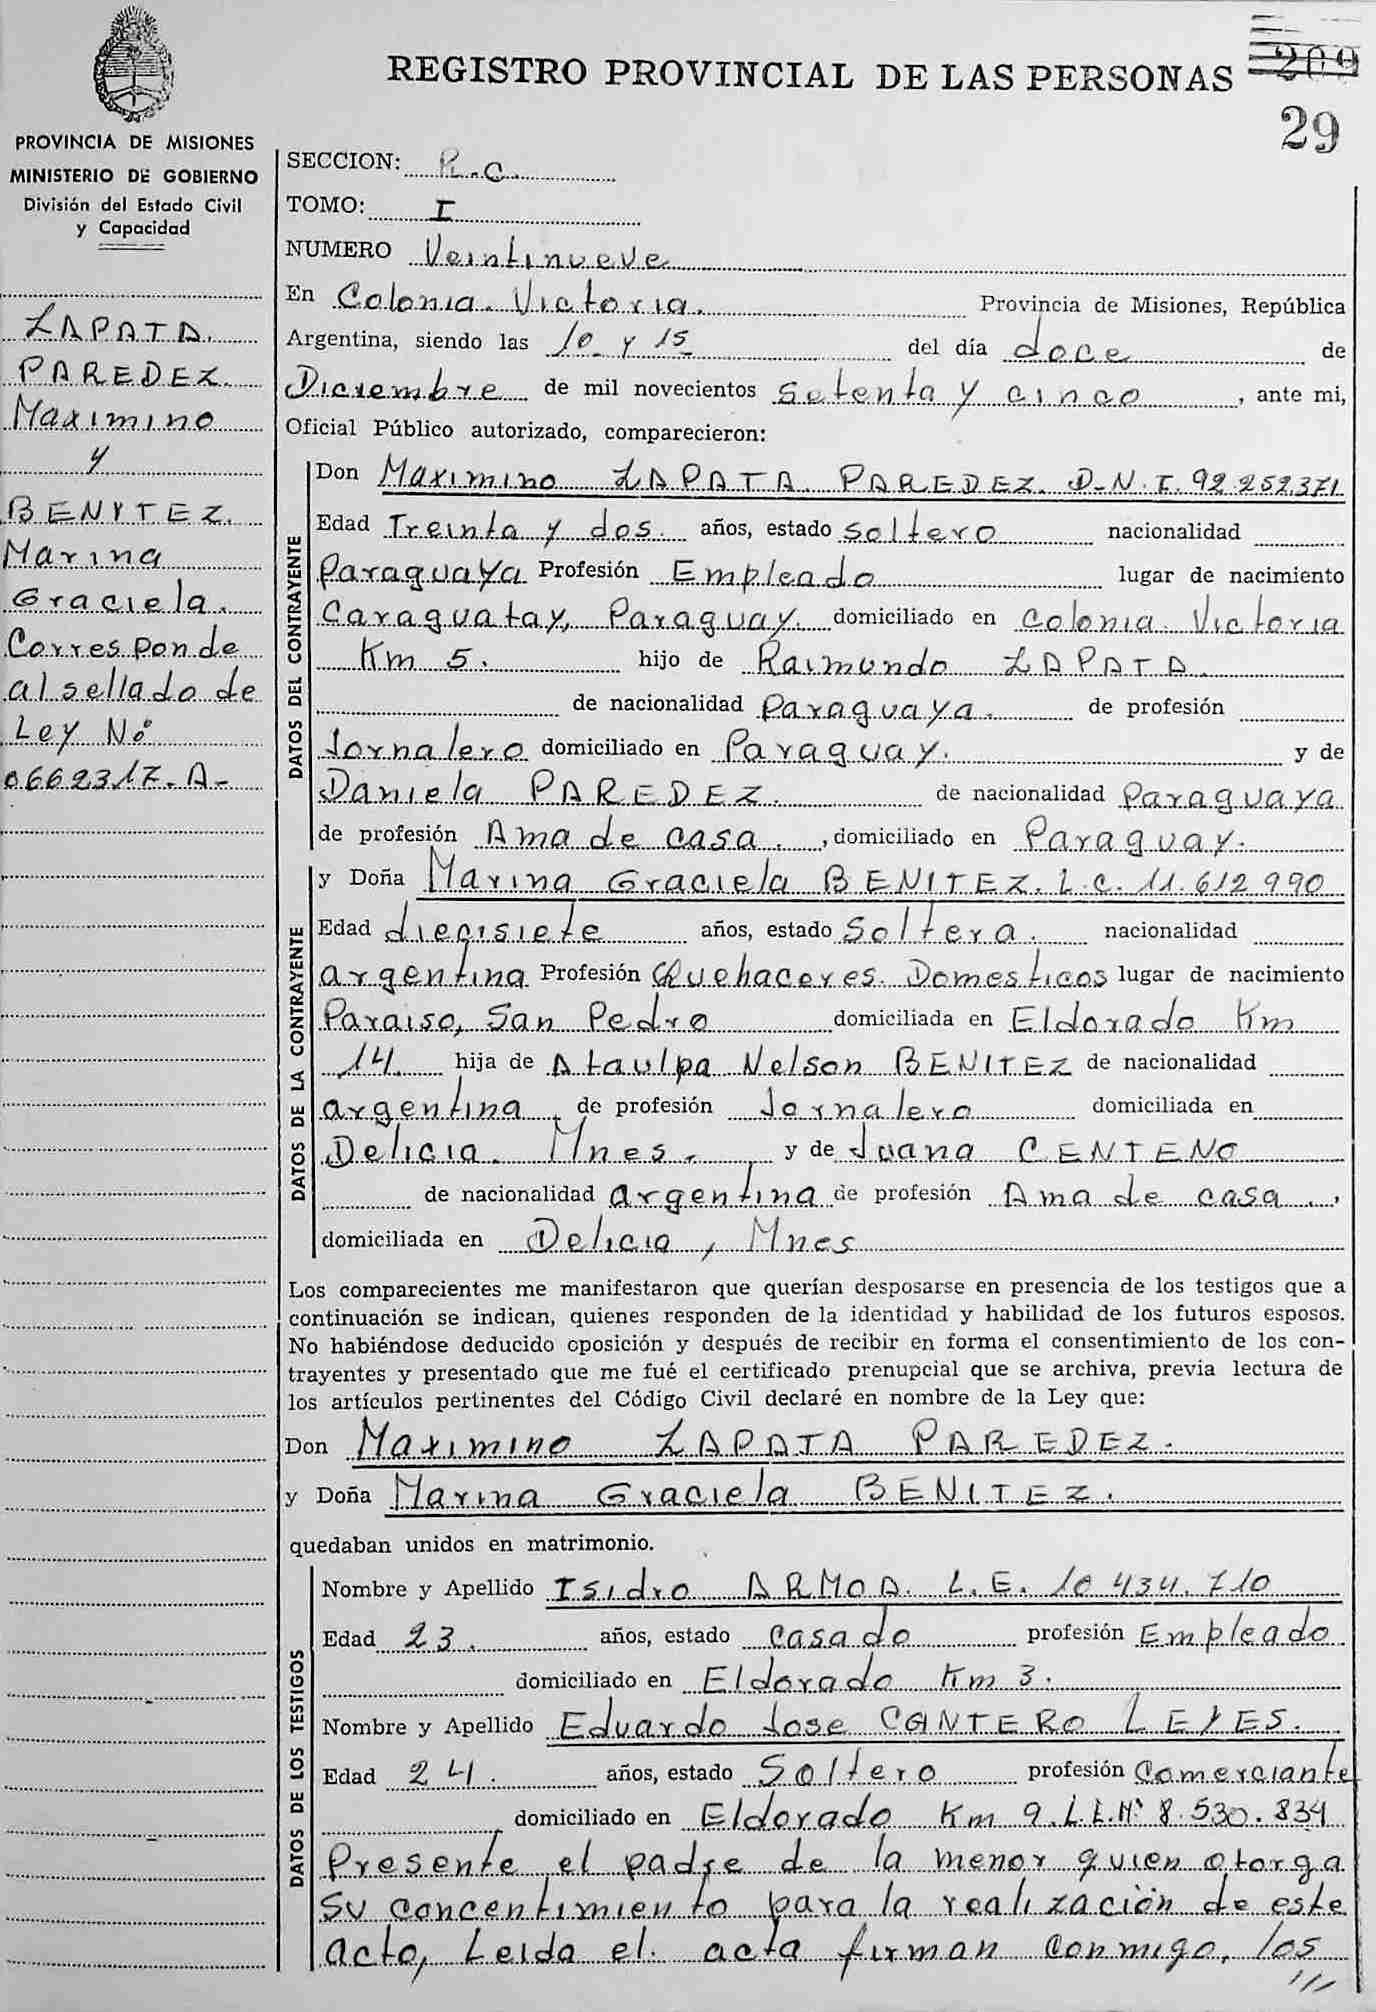 REGISTRO PROVINCIAL DE LAS PERSONAS
209
29
PROVINCIA DE MISIONES
MINISTERIO DE GOBIERNO
División del Estado Civil
y Capacidad
ZAPATA
PAREDEZ
Maximino
y
BENITEZ
Marina
Graciela.
Corresponde
al sellado de
Ley Nº
0662317-A-
SECCION: R.C.
TOMO: I
NUMERO Veintinueve
En Colonia Victoria. Provincia de Misiones, República
Argentina, siendo las 10 y 15 del día doce de
Diciembre de mil novecientos setenta y cinco, ante mi,
Oficial Público autorizado, comparecieron:
DATOS DEL CONTRAYENTE
Don Maximino ZAPATA PAREDEZ. D.N.I. 92.252.371
Edad Treinta y dos. años, estado soltero nacionalidad
Paraguaya Profesión Empleado lugar de nacimiento
Caraguatay, Paraguay. domiciliado en Colonia Victoria
Km 5. hijo de Raimundo ZAPATA.
de nacionalidad Paraguaya. de profesión
Jornalero domiciliado en Paraguay. y de
Daniela PAREDEZ. de nacionalidad Paraguaya
de profesión Ama de casa., domiciliado en Paraguay.
DATOS DE LA CONTRAYENTE
y Doña Marina Graciela BENITEZ. L.C. 11.612.990
Edad diecisiete años, estado Soltera. nacionalidad
argentina Profesión Quehaceres Domesticos lugar de nacimiento
Paraiso, San Pedro domiciliada en Eldorado Km
14. hija de Ataulpa Nelson BENITEZ de nacionalidad
argentina, de profesión Jornalero domiciliada en
Delicia. Mnes. y de Juana CENTENO
de nacionalidad argentina de profesión Ama de casa.,
domiciliada en Delicia, Mnes
Los comparecientes me manifestaron que querían desposarse en presencia de los testigos que a
continuación se indican, quienes responden de la identidad y habilidad de los futuros esposos.
No habiéndose deducido oposición y después de recibir en forma el consentimiento de los con-
trayentes y presentado que me fué el certificado prenupcial que se archiva, previa lectura de
los artículos pertinentes del Código Civil declaré en nombre de la Ley que:
Don Maximino ZAPATA PAREDEZ.
y Doña Marina Graciela BENITEZ.
quedaban unidos en matrimonio.
DATOS DE LOS TESTIGOS
Nombre y Apellido Isidro ARMOA. L.E. 10.434.710
Edad 23. años, estado casado profesión Empleado
domiciliado en Eldorado Km 3.
Nombre y Apellido Eduardo Jose CANTERO LEYES.
Edad 24. años, estado Soltero profesión Comerciante
domiciliado en Eldorado Km 9. L.E.Nº 8.530.834
Presente el padre de la menor quien otorga
su concentimiento para la realización de este
acto, Leida el acta firman conmigo, los
///